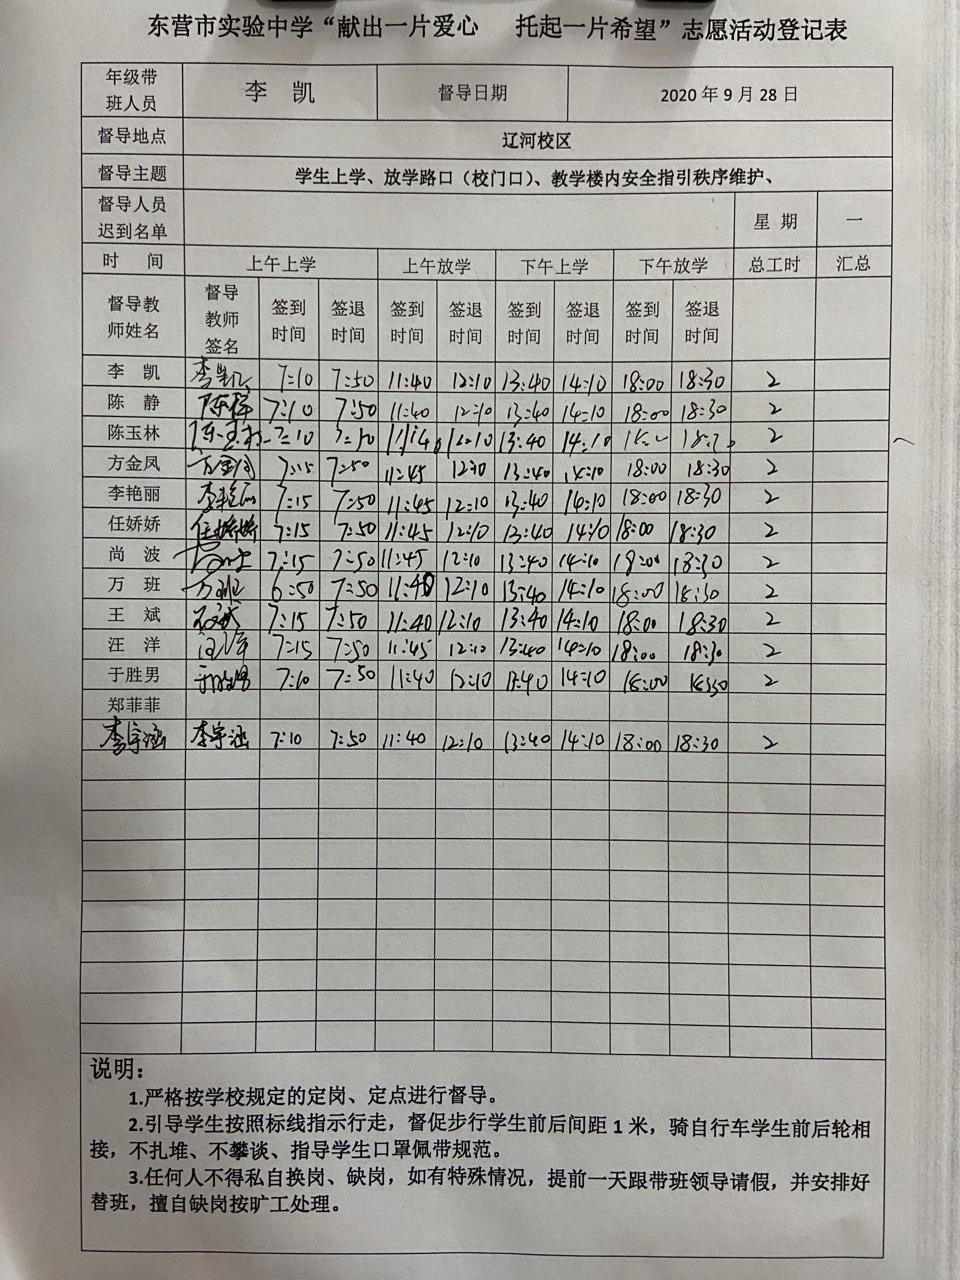 东营市实验中学“献出一片爱心 托起一片希望”志愿活动登记表
年级带班人员 李 凯 督导日期 2020 年 9 月 28 日
督导地点 辽河校区
督导主题 学生上学、放学路口（校门口）、教学楼内安全指引秩序维护、
督导人员迟到名单 星 期 一
时 间 上午上学 上午放学 下午上学 下午放学 总工时 汇总
督导教师姓名 督导教师签名 签到时间 签退时间 签到时间 签退时间 签到时间 签退时间 签到时间 签退时间
李 凯 李凯 7:10 7:50 11:40 12:10 13:40 14:10 18:00 18:30 2
陈 静 陈静 7:10 7:50 11:40 12:10 13:40 14:10 18:00 18:30 2
陈玉林 陈玉林 7:10 7:50 12:10 13:40 14:10 2
方金凤 方金凤 7:15 7:50 11:45 12:10 13:40 14:10 18:00 18:30 2
李艳丽 李艳丽 7:15 7:50 11:45 12:10 13:40 14:10 18:00 18:30 2
任娇娇 任娇娇 7:15 7:50 11:45 12:10 13:40 14:10 18:00 18:30 2
尚 波 7:15 7:50 11:45 12:10 13:40 14:10 18:00 18:30 2
万 班 万班 6:50 7:50 11:40 12:10 13:40 14:10 18:00 18:30 2
王 斌 王斌 7:15 7:50 11:40 12:10 13:40 14:10 18:00 18:30 2
汪 洋 汪洋 7:15 7:50 11:45 12:10 13:40 14:10 18:00 18:30 2
于胜男 于胜男 7:10 7:50 11:40 12:10 13:40 14:10 18:00 18:30 2
郑菲菲
李宇涵 李宇涵 7:10 7:50 11:40 12:10 13:40 14:10 18:00 18:30 2
说明：
1.严格按学校规定的定岗、定点进行督导。
2.引导学生按照标线指示行走，督促步行学生前后间距 1 米，骑自行车学生前后轮相
接，不扎堆、不攀谈、指导学生口罩佩带规范。
3.任何人不得私自换岗、缺岗，如有特殊情况，提前一天跟带班领导请假，并安排好
替班，擅自缺岗按旷工处理。